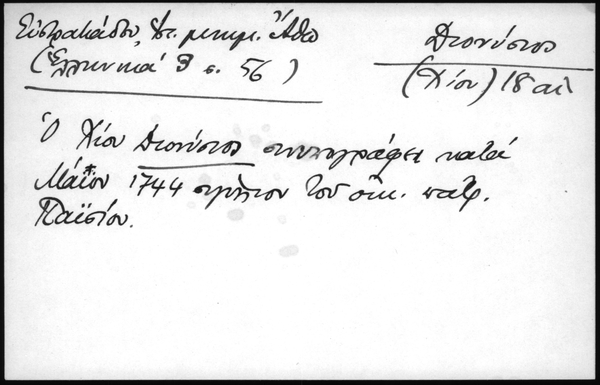 Εὐστρατιάδου, Ἱστ. μνημ. Ἄθω
(Ἑλληνικά 3 σ. 56)
Διονύσιος
(Χίου) 18 αἰ.
Ὁ Χίου Διονύσιος συνυπογράφει κατά
Μάϊον 1744 σιγίλλιον τοῦ οἰκ. πατρ.
Παϊσίου.